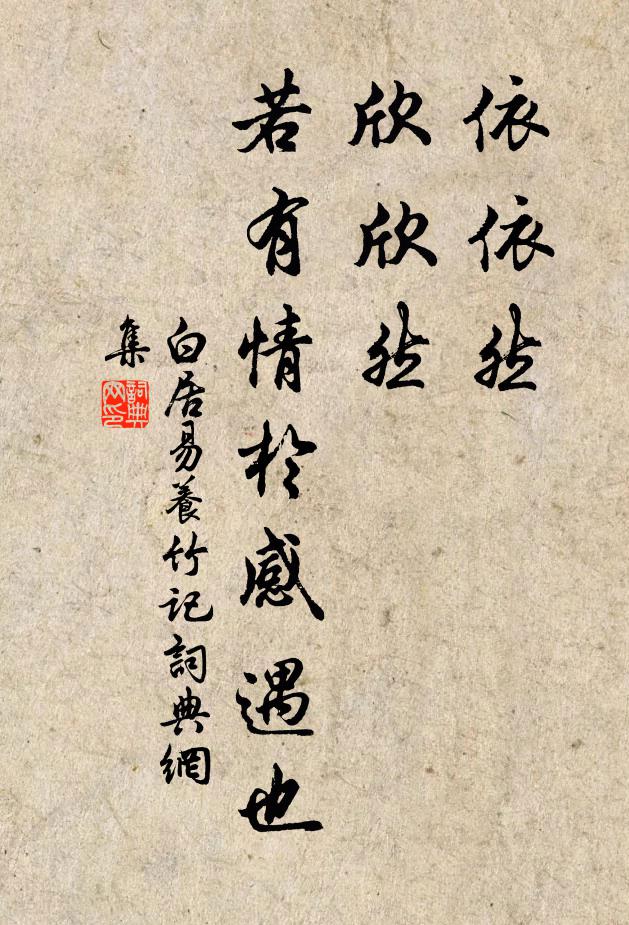 依依然
欣欣然
若有情於感遇也
白居易養竹記詞典網
集
詞典
网印